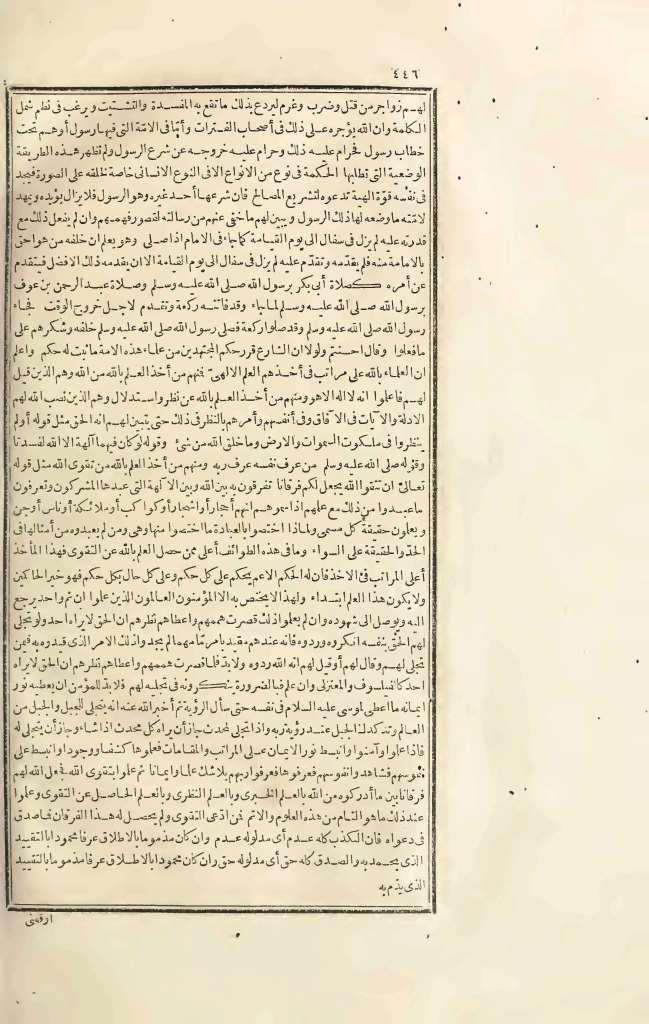 ٤٤٦
لهم زواجر من قتل وضرب وغرم ليردع بذلك ما تقع به المفسدة والتشتيت ويرغب فى نظم شمل
الكلمة وان الله يؤجره على ذلك فى أصحاب الفترات وأما فى الامة التى فيها رسول أو هم تحت
خطاب رسول فحرام عليه ذلك وحرام عليه خروجه عن شرع الرسول ولم تظهر هذه الطريقة
الوضعية التى تطلبها الحكمة فى نوع من الانواع الا فى النوع الانسانى خاصة لخلقه على الصورة فيجد
فى نفسه قوة الهية تدعوه لتشريع المصالح فان شرعها أحد غيره وهو الرسول فلا يزال يؤيده ويمهد
لامته ما وضعه لها ذلك الرسول ويبين لهم ما خفى عنهم من رسالته لقصور فهمهم وان لم يفعل ذلك مع
قدرته عليه لم يزل فى سفال الى يوم القيامة كما جاء فى الامام اذا صلى وهو يعلم ان خلفه من هو أحق
بالامامة منه فلم يقدمه وتقدم عليه لم يزل فى سفال الى يوم القيامة الا ان يقدمه ذلك الافضل فيتقدم
عن أمره كصلاة أبى بكر برسول الله صلى الله عليه وسلم وصلاة عبد الرحمن بن عوف
برسول الله صلى الله عليه وسلم لما جاء وقد فاتته ركعة وتقدم لاجل خروج الوقت فجاء
رسول الله صلى الله عليه وسلم وقد صلوا ركعة فصلى رسول الله صلى الله عليه وسلم خلفه وشكرهم على
ما فعلوا وقال احسنتم ولولا ان الشارع قرر حكم المجتهدين من علماء هذه الامة ما ثبت له حكم واعلم
ان العلماء بالله على مراتب فى أخذهم العلم الالهى فنهم من أخذ العلم بالله من الله وهم الذين قيل
لهم فاعلموا انه لا اله الا هو ومنهم من أخذ العلم بالله عن نظر واستدلال وهم الذين نصب الله لهم
الادلة والآيات فى الآفاق وفى أنفسهم وأمرهم بالنظر فى ذلك حتى يتبين لهم انه الحق مثل قوله أولم
ينظروا فى ملكوت السموات والارض وما خلق الله من شئ وقوله لو كان فيهما آلهة الا الله لفسدتا
وقوله صلى الله عليه وسلم من عرف نفسه عرف ربه ومنهم من أخذ العلم بالله من تقوى الله مثل قوله
تعالى ان تتقوا الله يجعل لكم فرقانا تفرقون به بين الله وبين الآلهة التى عبدها المشركون وتعرفون
ما عبدوا من ذلك مع علمهم اذا سموهم انهم أحجار أو اشجار أو كواكب أو ملائكة أو ناس أو جن
ويعلمون حقيقة كل مسمى ولماذا اختصوا بالعبادة ما اختصوا منها وهى ومن لم يعبدوه من أمثالها فى
الحد والحقيقة على السواء وما فى هذه الطوائف أعلى ممن حصل العلم بالله عن التقوى فهذا المأخذ
أعلى المراتب فى الاخذ فان له الحكم الاعم يحكم على كل حكم وعلى كل حال بكل حكم فهو خير الحاكمين
ولا يكون هذا العلم ابتداء ولهذا لا يختص به الا المؤمنون العالمون الذين علموا ان ثم واحد يرجع
اليه ويوصل الى شهوده وان لم يعلموا ذلك قصرت هممهم وأعطاهم نظرهم ان الحق لا يراه احد ولو تجلى
لهم الحق بنفسه انكروه وردوه فانه عندهم مقيد بأمر ما مهما لم يجدوا ذلك الامر الذى قيدوه به فيمن
تجلى لهم وقال لهم أو قيل لهم انه الله ردوه ولا بد فلما قصرت هممهم واعطاهم نظرهم ان الحق لا يراه
احد كالفيلسوف والمعتزلى وان علم فبالضرورة ينكرونه فى تجليه لهم فلا بد للمؤمن ان يعطيه نور
ايمانه ما اعطى لموسى عليه السلام فى نفسه حتى سأل الرؤية ثم أخبر الله عنه انه يتجلى للجبل والجبل من
العالم وتدكدك الجبل عند رؤية ربه واذا تجلى لمحدث جاز أن يراه كل محدث اذا شاء وجاز أن يتجلى له
فاذا علموا وآمنوا وانبسط نور الايمان على المراتب والمقامات فعلموها كشفا ووجودا وانبسط على
نفوسهم فشاهدوا نفوسهم فعرفوها فعرفوا ربهم بلا شك علما وايمانا ثم علموا بتقوى الله فجعل الله لهم
فرقانا بين ما أدركوه من الله بالعلم الخبرى وبالعلم النظرى وبالعلم الحاصل عن التقوى وعلموا
عند ذلك ما هو التام من هذه العلوم والاتم فمن ادعى التقوى ولم يحصل له هذا الفرقان فما صدق
فى دعواه فان الكذب كله عدم أى مدلوله عدم وان كان مذموما بالاطلاق عرفا محمودا بالتقييد
الذى يحمد به والصدق كله حق أى مدلوله حق وان كان محمودا بالاطلاق عرفا مذموما بالتقييد
الذى يذم به